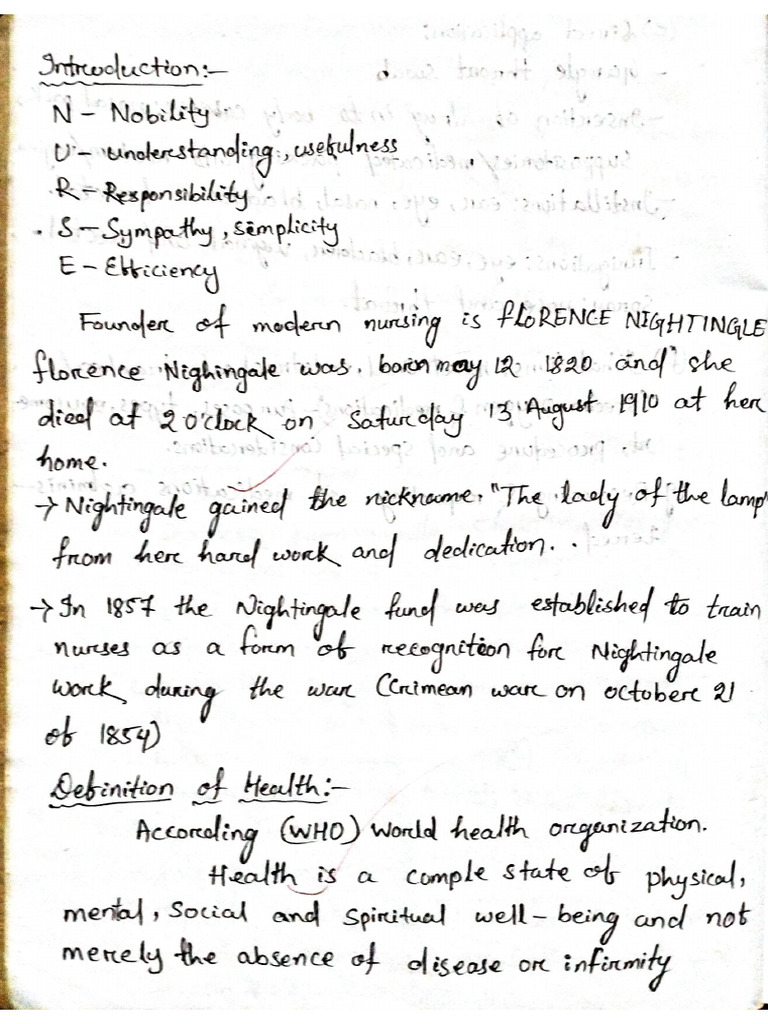 Introduction:-
N - Nobility
U - understanding, usefulness
R - Responsibility
S - Sympathy, Simplicity
E - Efficiency
Founder of modern nursing is fLORENCE NIGHTINGLE
florence Nighingale was. born may 12 1820 and she
died at 2 o'clock on Saturday 13 August 1910 at her
home.
→ Nightingale gained the nickname. "The lady of the lamp"
from here hard work and dedication.
→ In 1857 the Nightingale fund was established to train
nurses as a form of recognition for Nightingale
work, during the war (Crimean war on october 21
of 1854)
Definition of Health:-
According (WHO) World health organization.
Health is a comple state of physical,
mental, Social and Spiritual well-being and not
merely the absence of disease or infirmity